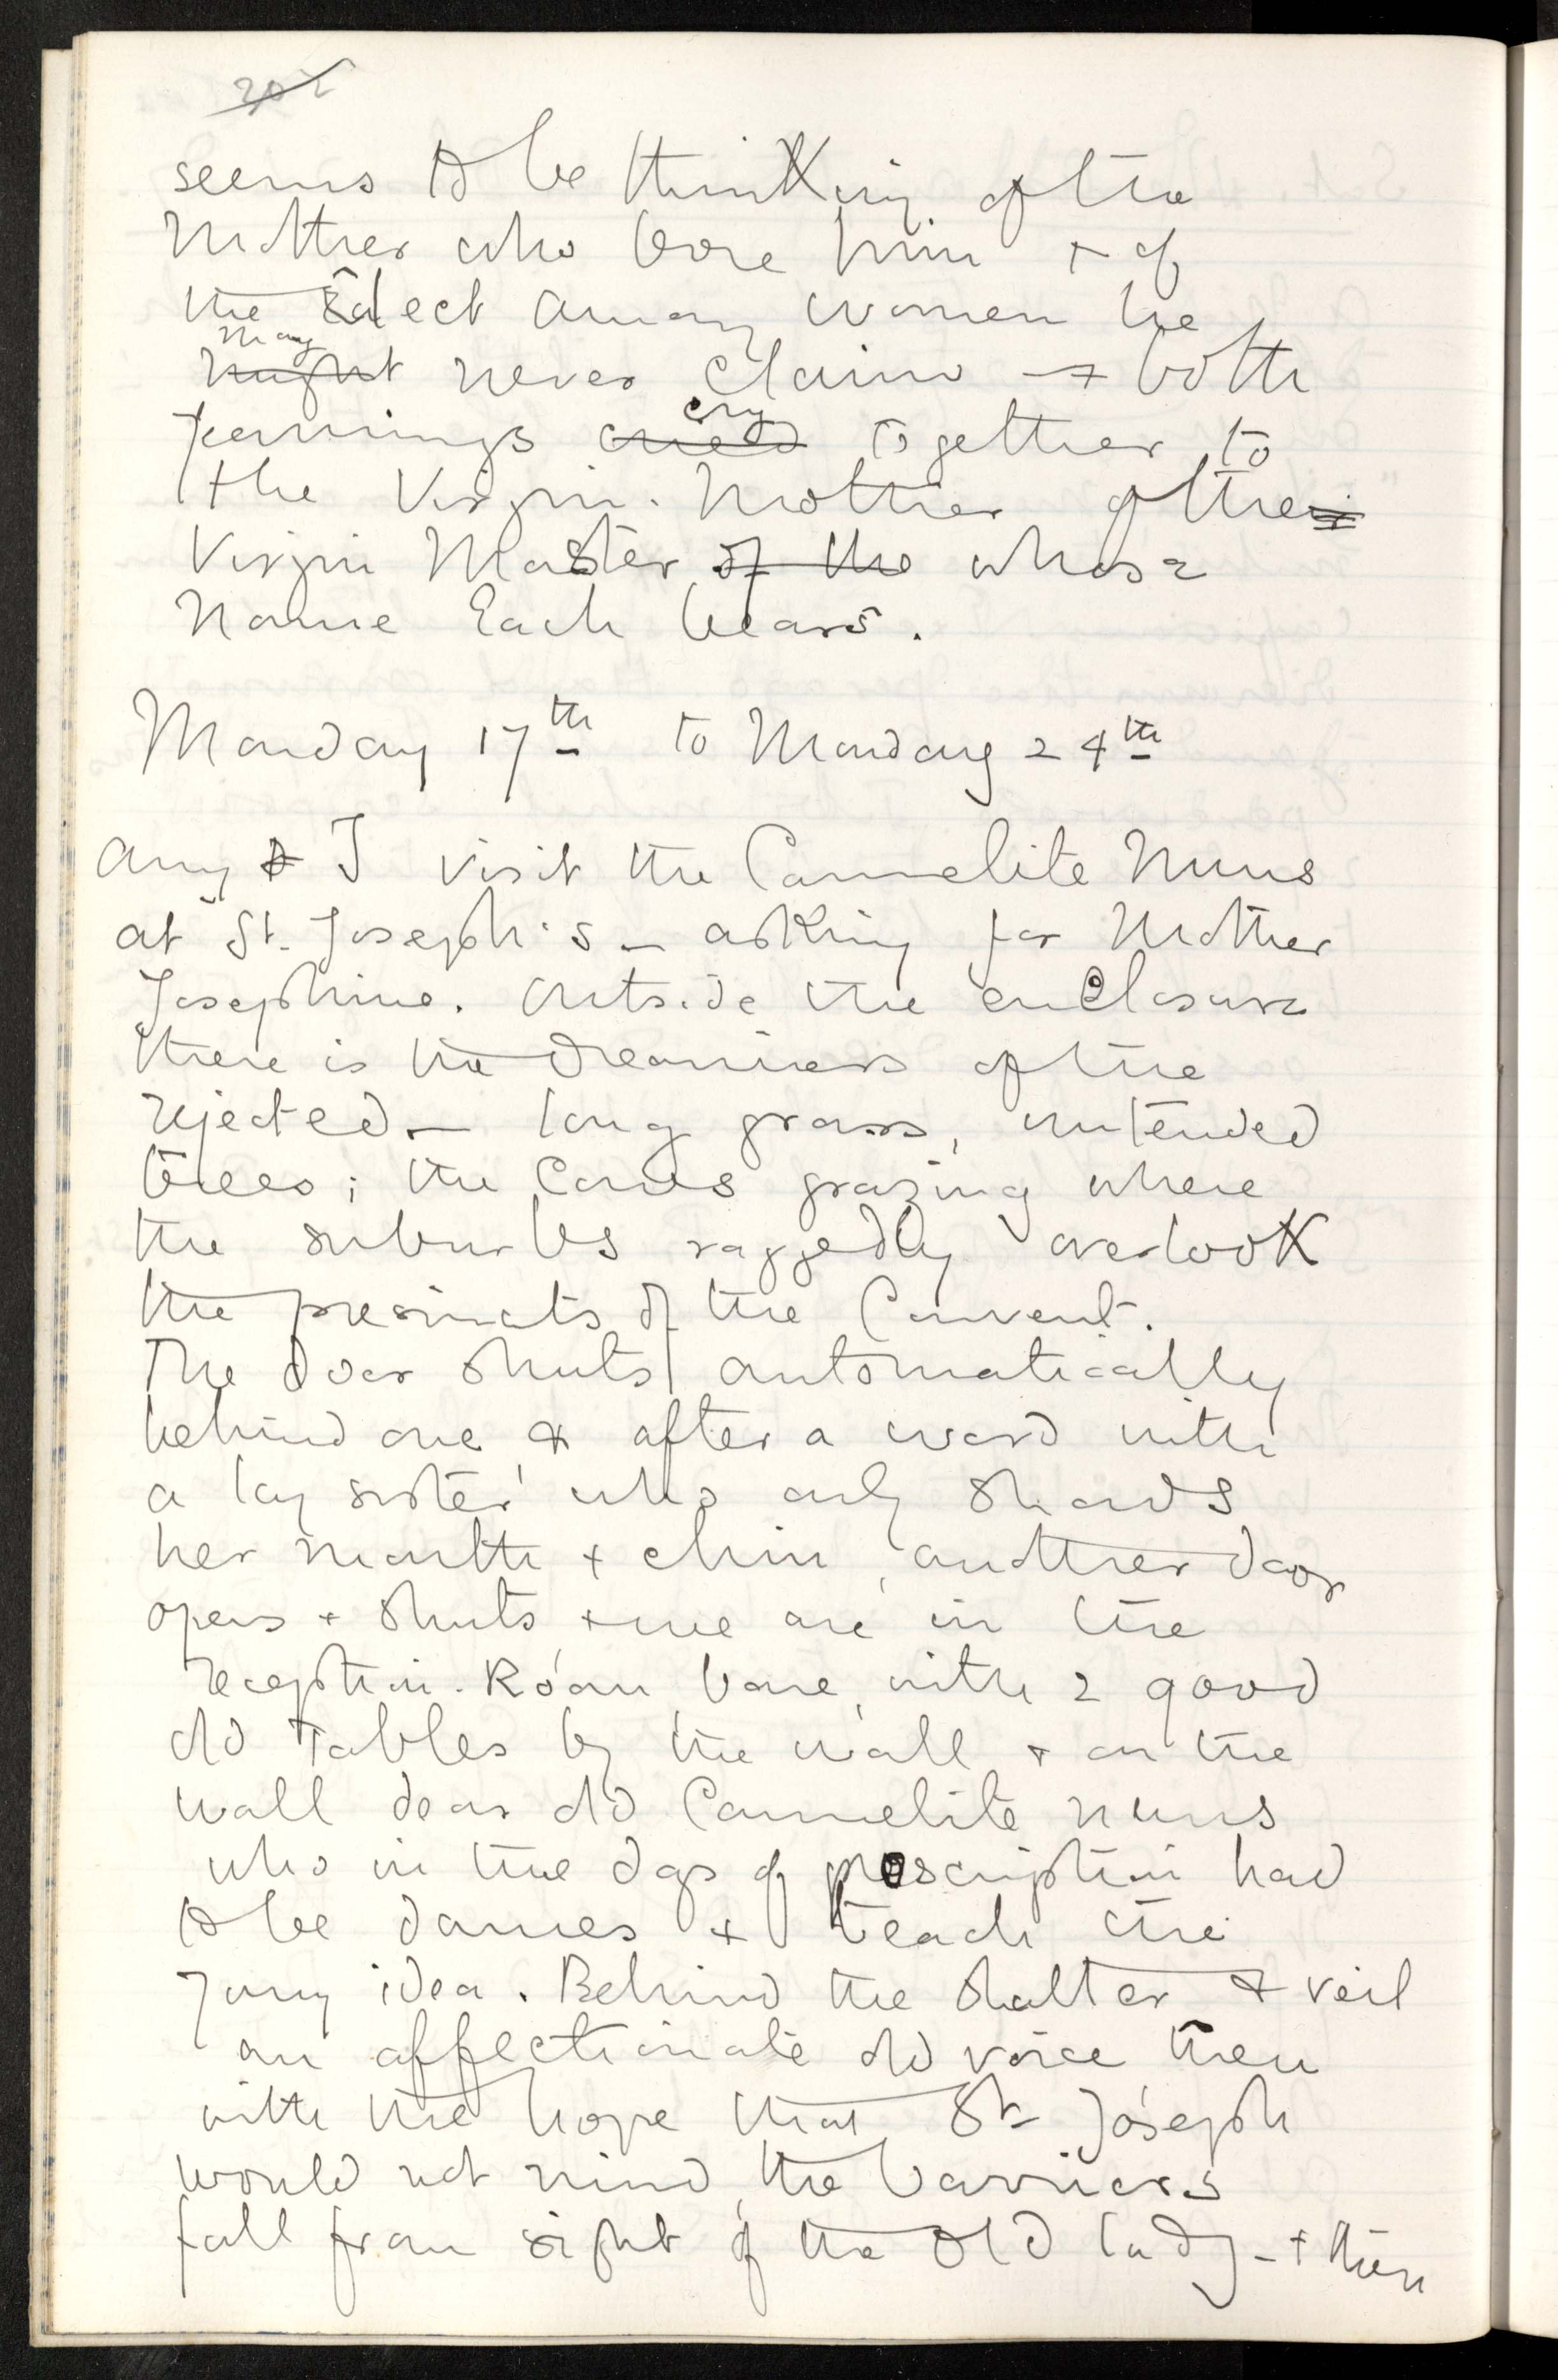 seems to be thinking of the
Mother who bore him & of
the Elect among women he
may
might never claim → both
Yearnings cried cry together to
the Virgin-Mother of their
Virgin Master of the whose
Name Each bears.
Monday 17th to Monday 24th
Amy & I visit the Carmelite Nuns
at St. Joseph's — asking for Mother
Josephine. Outside the enclosure
there is the dreariness of the
rejected — long grass, untended
trees; the Cows grazing where
the suburbs raggedly overlook
the precincts of the Convent.
The door shuts automatically
behind one & after a word with
a lay sister who only shows
her mouth & chin, another door
opens & shuts & we are in the
reception-Room, bare, with 2 good
old Tables by the wall & on the
wall dear old Carmelite nuns
who in the days of proscription had
to be dames & teach the
young idea. Behind the shutter & veil
an affectionate old voice then
with the hope that St Joseph
would not mind, the barriers
fall from sight of the old lady — & then